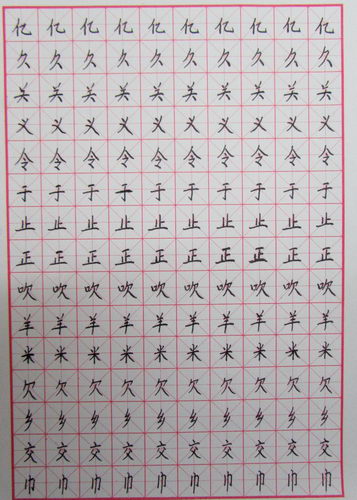 亿亿亿亿亿亿亿亿亿亿
久久久久久久久久久久
关关关关关关关关关关
义义义义义义义义义义
令令令令令令令令令令
于于于于于于于于于于
止止止止止止止止止止
正正正正正正正正正正
吹吹吹吹吹吹吹吹吹吹
羊羊羊羊羊羊羊羊羊羊
米米米米米米米米米米
欠欠欠欠欠欠欠欠欠欠
乡乡乡乡乡乡乡乡乡乡
交交交交交交交交交交
巾巾巾巾巾巾巾巾巾巾